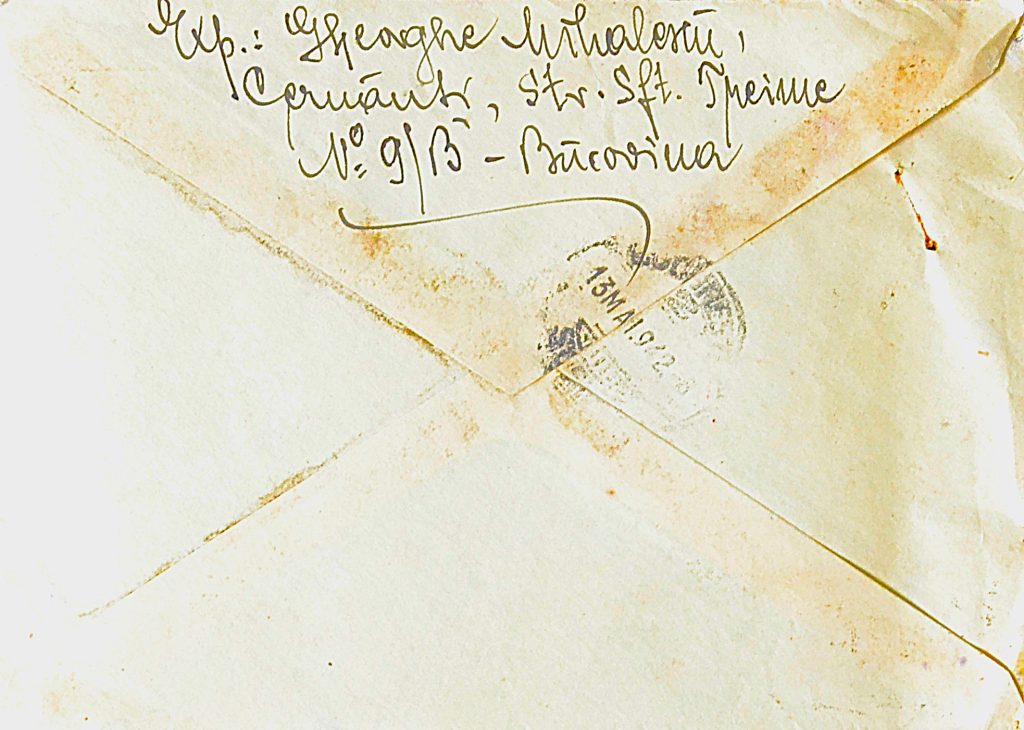 Exp.: Gheorghe Mihalescu,
Cernăuti, Str. Sft. Treime
No 9/B - Bucovina
13 MAI.942